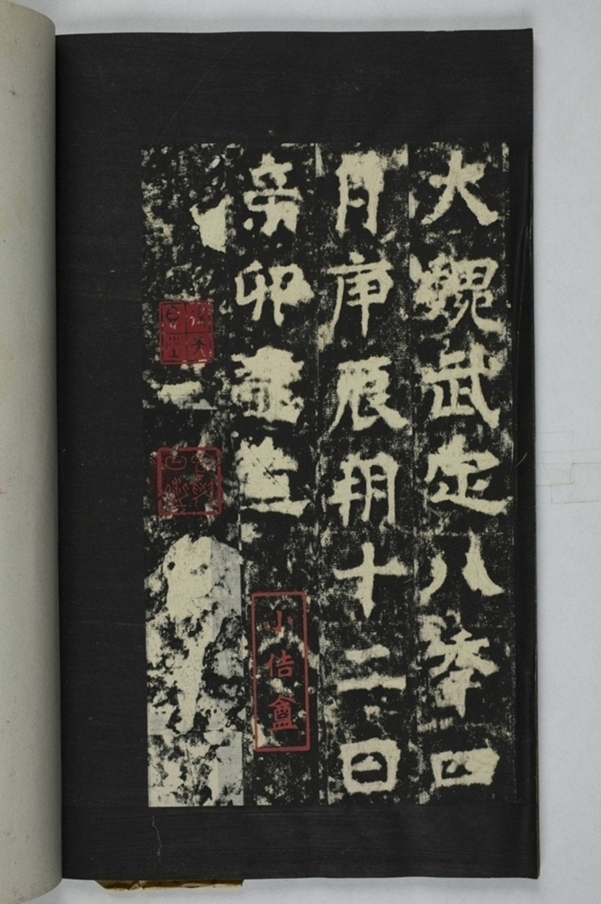 大魏武定八秊四
月庚辰朔十二日
辛卯
小佶盦